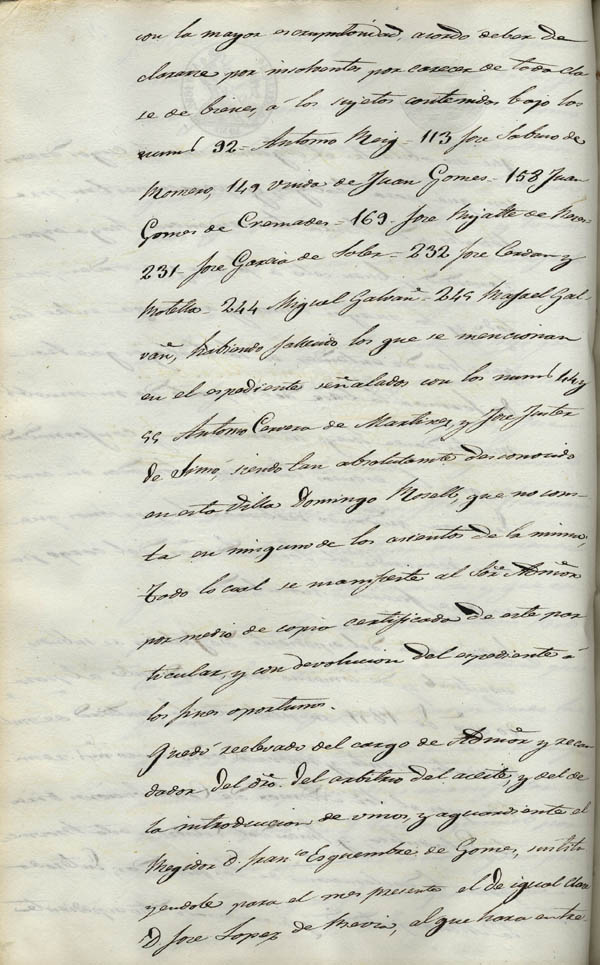 con la mayor escrupulosidad, acordo deber de
clararse por insolventes por carecer de toda cla
se de bienes, á los sujetos contenidos bajo los
num.s 92= Antonio Reig= 113 Jose Sabuco de
Romero, 149 Viuda de Juan Gomes= 158 Juan
Gomes de Cremades= 169= Jose Mijalte de
231= Jose Garcia de Soler= 232 Jose Cerdan y
Motella= 244 Miguel Galvañ= 249 Rafael Gal-
vañ, habiendo fallecido los que se mencionan
en el espediente señalados con los num.s 14 y
55 Antonio Cervera de Martinez, y Jose
de siendo tan absolutamte desconocido
en esta Villa Domingo Rosell, que no cons-
ta en ninguno de los asientos de la misma;
Todo lo cual se manifieste al Sor Admor
por medio de copia certificada de este par
ticular, y con devolucion del espediente á
los fines oportunos.
Quedó relevado del cargo de Admor y recau
dador del dro. del arbitrio del aceite, y del de
la introduccion de vinos, y aguardiente el
Regidor D. Franco Esquembre de Gomes, sustitu
yendole para el mes presente el de igual clase
D Jose Lopez de Mevia, al que hara entre